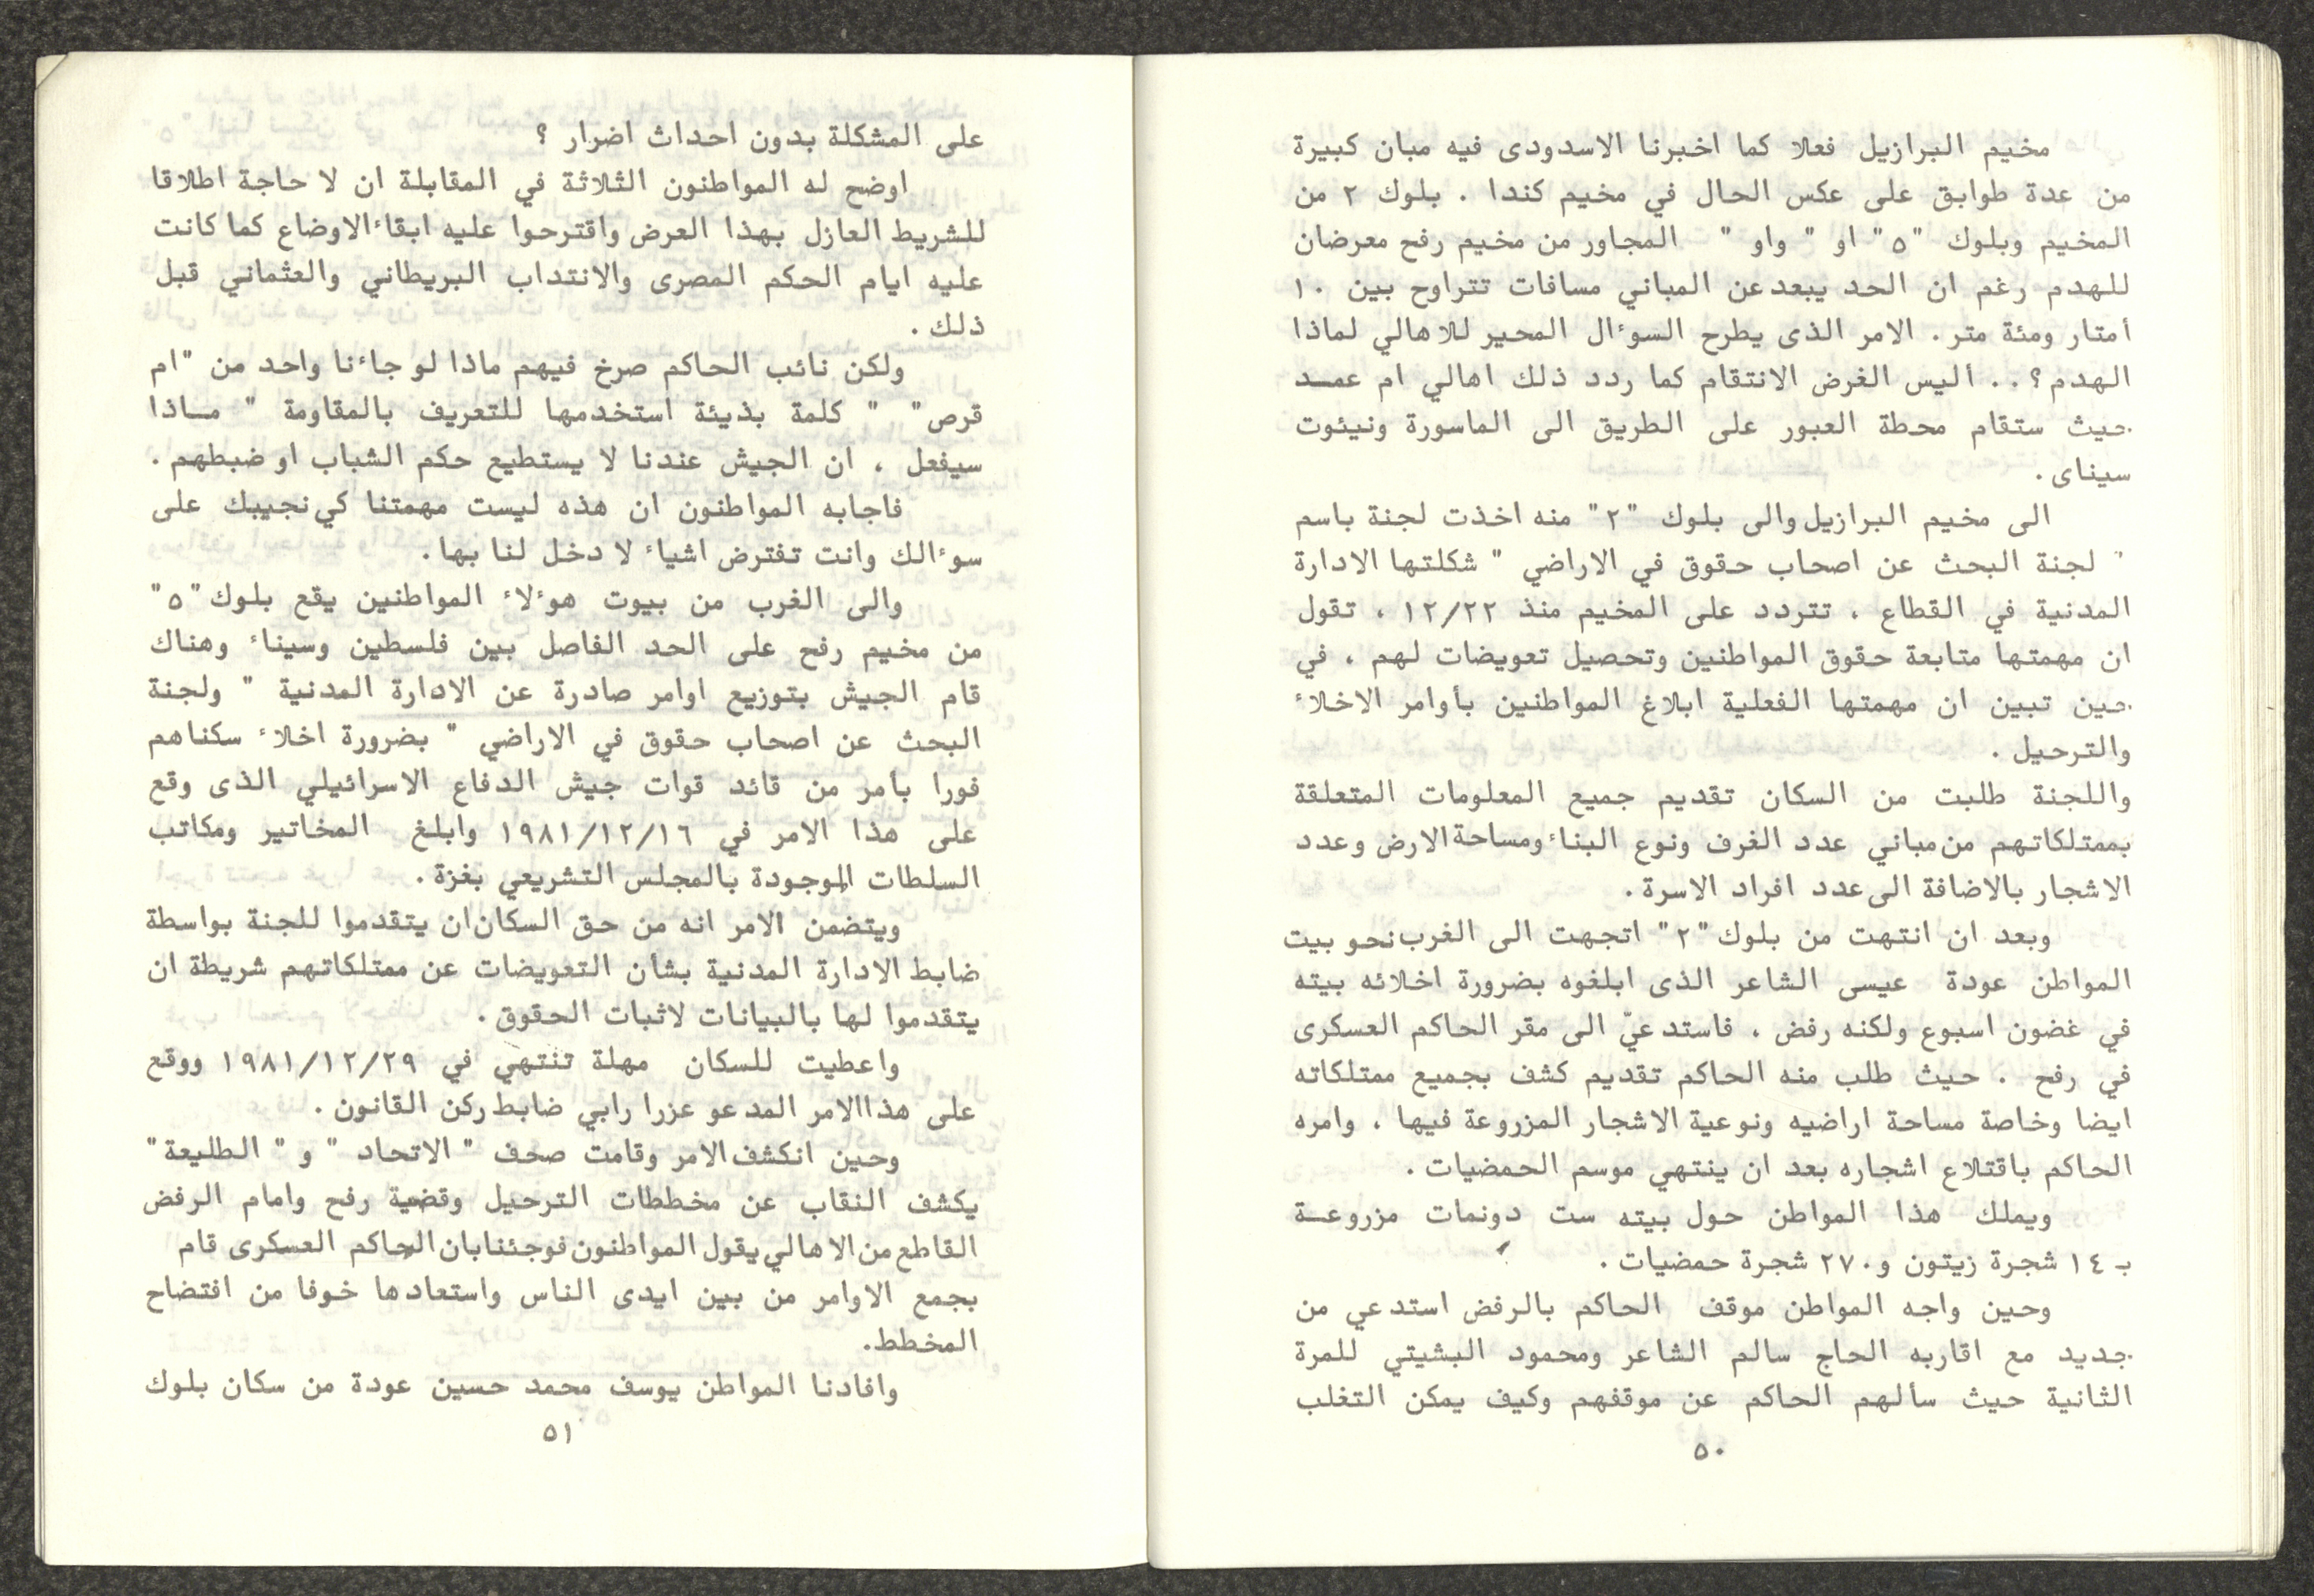 مخيم البرازيل فعلا كما اخبرنا الاسدودى فيه مبان كبيرة
من عدة طوابق على عكس الحال في مخيم كندا . بلوك ٢ من
المخيم وبلوك "٥" او " واو " المجاور من مخيم رفح معرضان
للهدم رغم ان الحد يبعد عن المباني مسافات تتراوح بين ١٠
أمتار ومئة متر . الامر الذى يطرح السوٴال المحير للاهالي لماذا
الهدم ؟ . . اليس الغرض الانتقام كما ردد ذلك اهالي ام عمـد
حيث ستقام محطة العبور على الطريق الى الماسورة ونيئوت
سيناى .
الى مخيم البرازيل والى بلوك "٢" منه اخذت لجنة باسم
" لجنة البحث عن اصحاب حقوق في الاراضي " شكلتها الادارة
المدنية في القطاع ، تتردد على المخيم منذ ١٢/٢٢ ، تقول
ان مهمتها متابعة حقوق المواطنين وتحصيل تعويضات لهم ، في
حين تبين ان مهمتها الفعلية ابلاغ المواطنين بأوامر الاخلاء
والترحيل .
واللجنة طلبت من السكان تقديم جميع المعلومات المتعلقة
بممتلكاتهم من مباني عدد الغرف ونوع البناء ومساحة الارض وعدد
الاشجار بالاضافة الى عدد افراد الاسرة .
وبعد ان انتهت من بلوك "٢" اتجهت الى الغرب نحو بيت
المواطن عودة عيسى الشاعر الذى ابلغوه بضرورة اخلائه بيته
في غضون اسبوع ولكنه رفض ، فاستدعيّ الى مقر الحاكم العسكرى
في رفح . حيث طلب منه الحاكم تقديم كشف بجميع ممتلكاته
ايضا وخاصة مساحة اراضيه ونوعية الاشجار المزروعة فيها ، وامره
الحاكم باقتلاع اشجاره بعد ان ينتهي موسم الحمضيات .
ويملك هذا المواطن حول بيته ست دونمات مزروعـة
بـ ١٤ شجرة زيتون و٢٧٠ شجرة حمضيات .
وحين واجه المواطن موقف الحاكم بالرفض استدعي من
جديد مع اقاربه الحاج سالم الشاعر ومحمود البشيتي للمرة
الثانية حيث سألهم الحاكم عن موقفهم وكيف يمكن التغلب
٥٠
على المشكلة بدون احداث اضرار ؟
اوضح له المواطنون الثلاثة في المقابلة ان لا حاجة اطلاقا
للشريط العازل بهذا العرض واقترحوا عليه ابقاء الاوضاع كما كانت
عليه ايام الحكم المصرى والانتداب البريطاني والعثماني قبل
ذلك .
ولكن نائب الحاكم صرخ فيهم ماذا لو جاءنا واحد من "ام
قرص" " كلمة بذيئة استخدمها للتعريف بالمقاومة " مـاذا
سيفعل ، ان الجيش عندنا لا يستطيع حكم الشباب او ضبطهم .
فاجابه المواطنون ان هذه ليست مهمتنا كي نجيبك على
سوٴالك وانت تفترض اشياء لا دخل لنا بها .
والى الغرب من بيوت هوٴلاء المواطنين يقع بلوك "٥"
من مخيم رفح على الحد الفاصل بين فلسطين وسيناء وهناك
قام الجيش بتوزيع اوامر صادرة عن الادارة المدنية " ولجنة
البحث عن اصحاب حقوق في الاراضي " بضرورة اخلاء سكناهم
فورا بأمر من قائد قوات جيش الدفاع الاسرائيلي الذى وقع
على هذا الامر في ١٩٨١/١٢/١٦ وابلغ المخاتير ومكاتب
السلطات الموجودة بالمجلس التشريعي بغزة .
ويتضمن الامر انه من حق السكان ان يتقدموا للجنة بواسطة
ضابط الادارة المدنية بشأن التعويضات عن ممتلكاتهم شريطة ان
يتقدموا لها بالبيانات لاثبات الحقوق .
واعطيت للسكان مهلة تنتهي في ١٩٨١/١٢/٢٩ ووقع
على هذا الامر المدعو عزرا رابي ضابط ركن القانون .
وحين انكشف الامر وقامت صحف " الاتحاد " و " الطليعة "
يكشف النقاب عن مخططات الترحيل وقضية رفح وامام الرفض
القاطع من الاهالي يقول المواطنون فوجئنا بان الحاكم العسكرى قام
بجمع الاوامر من بين ايدى الناس واستعادها خوفا من افتضاح
المخطط .
وافادنا المواطن يوسف محمد حسين عودة من سكان بلوك
٥١